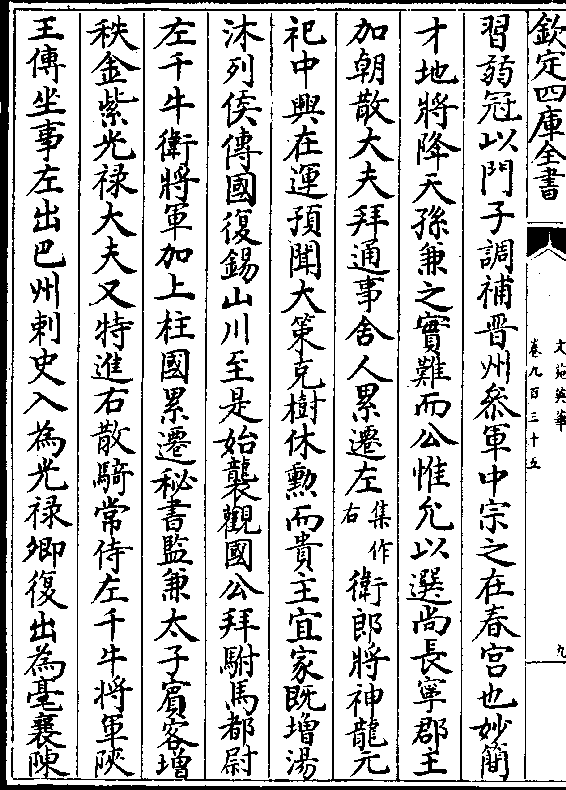 欽定四庫全書
文苑英華
卷九百三十五
九
習弱冠以門子調補晋州叅軍中宗之在春宫也妙簡
才地將降天孫兼之實難而公惟允以選尚長寧郡主
加朝散大夫拜通事舍人累遷左集作右衛郎將神龍元
祀中興在運預聞大策克樹休勲而貴主宜家既增湯
沐列侯傳國復錫山川至是始襲觀國公拜駙馬都尉
左千牛衛將軍加上柱國累遷秘書監兼太子賓客增
秩金紫光禄大夫又特進右散騎常侍左千牛將軍陜
王傅坐事左出巴州刺史入為光禄卿復出為亳襄陳